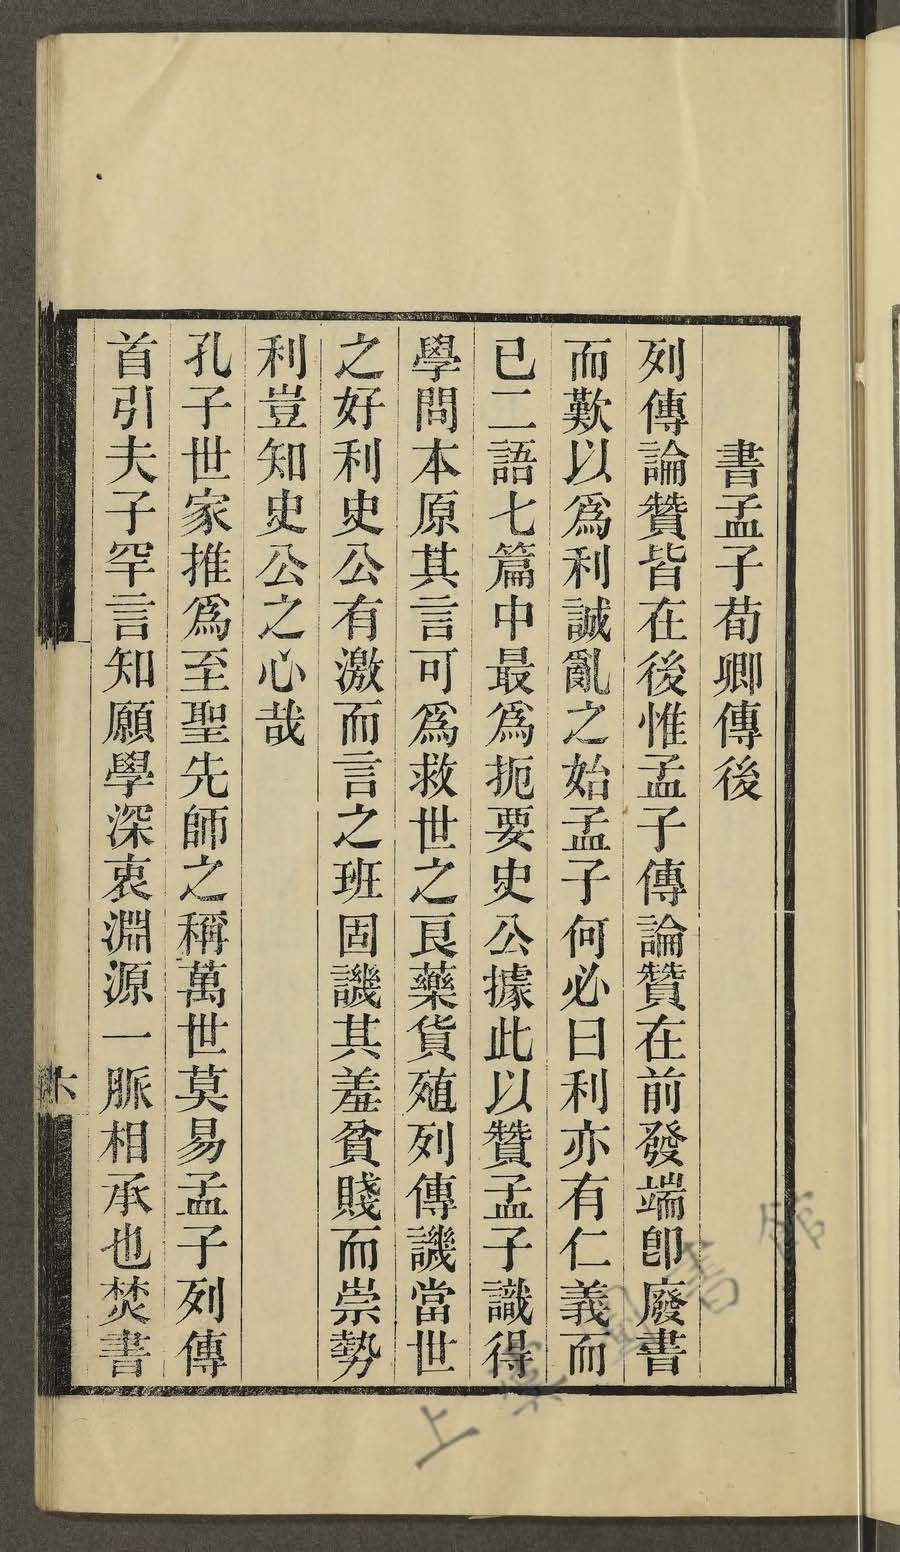 書孟子荀卿傳後
列傳論贊皆在後惟孟子傳論贊在前發端卽廢書
而歎以爲利誠亂之始孟子何必曰利亦有仁義而
已二語七篇中最爲扼要史公據此以贊孟子識得
學問本原其言可爲救世之良藥貨殖列傳譏當世
之好利史公有激而言之班固譏其羞貧賤而崇勢
利豈知史公之心哉
孔子世家推爲至聖先師之稱萬世莫易孟子列傳
首引夫子罕言知願學深衷淵源一脈相承也焚書
上虞圖書館